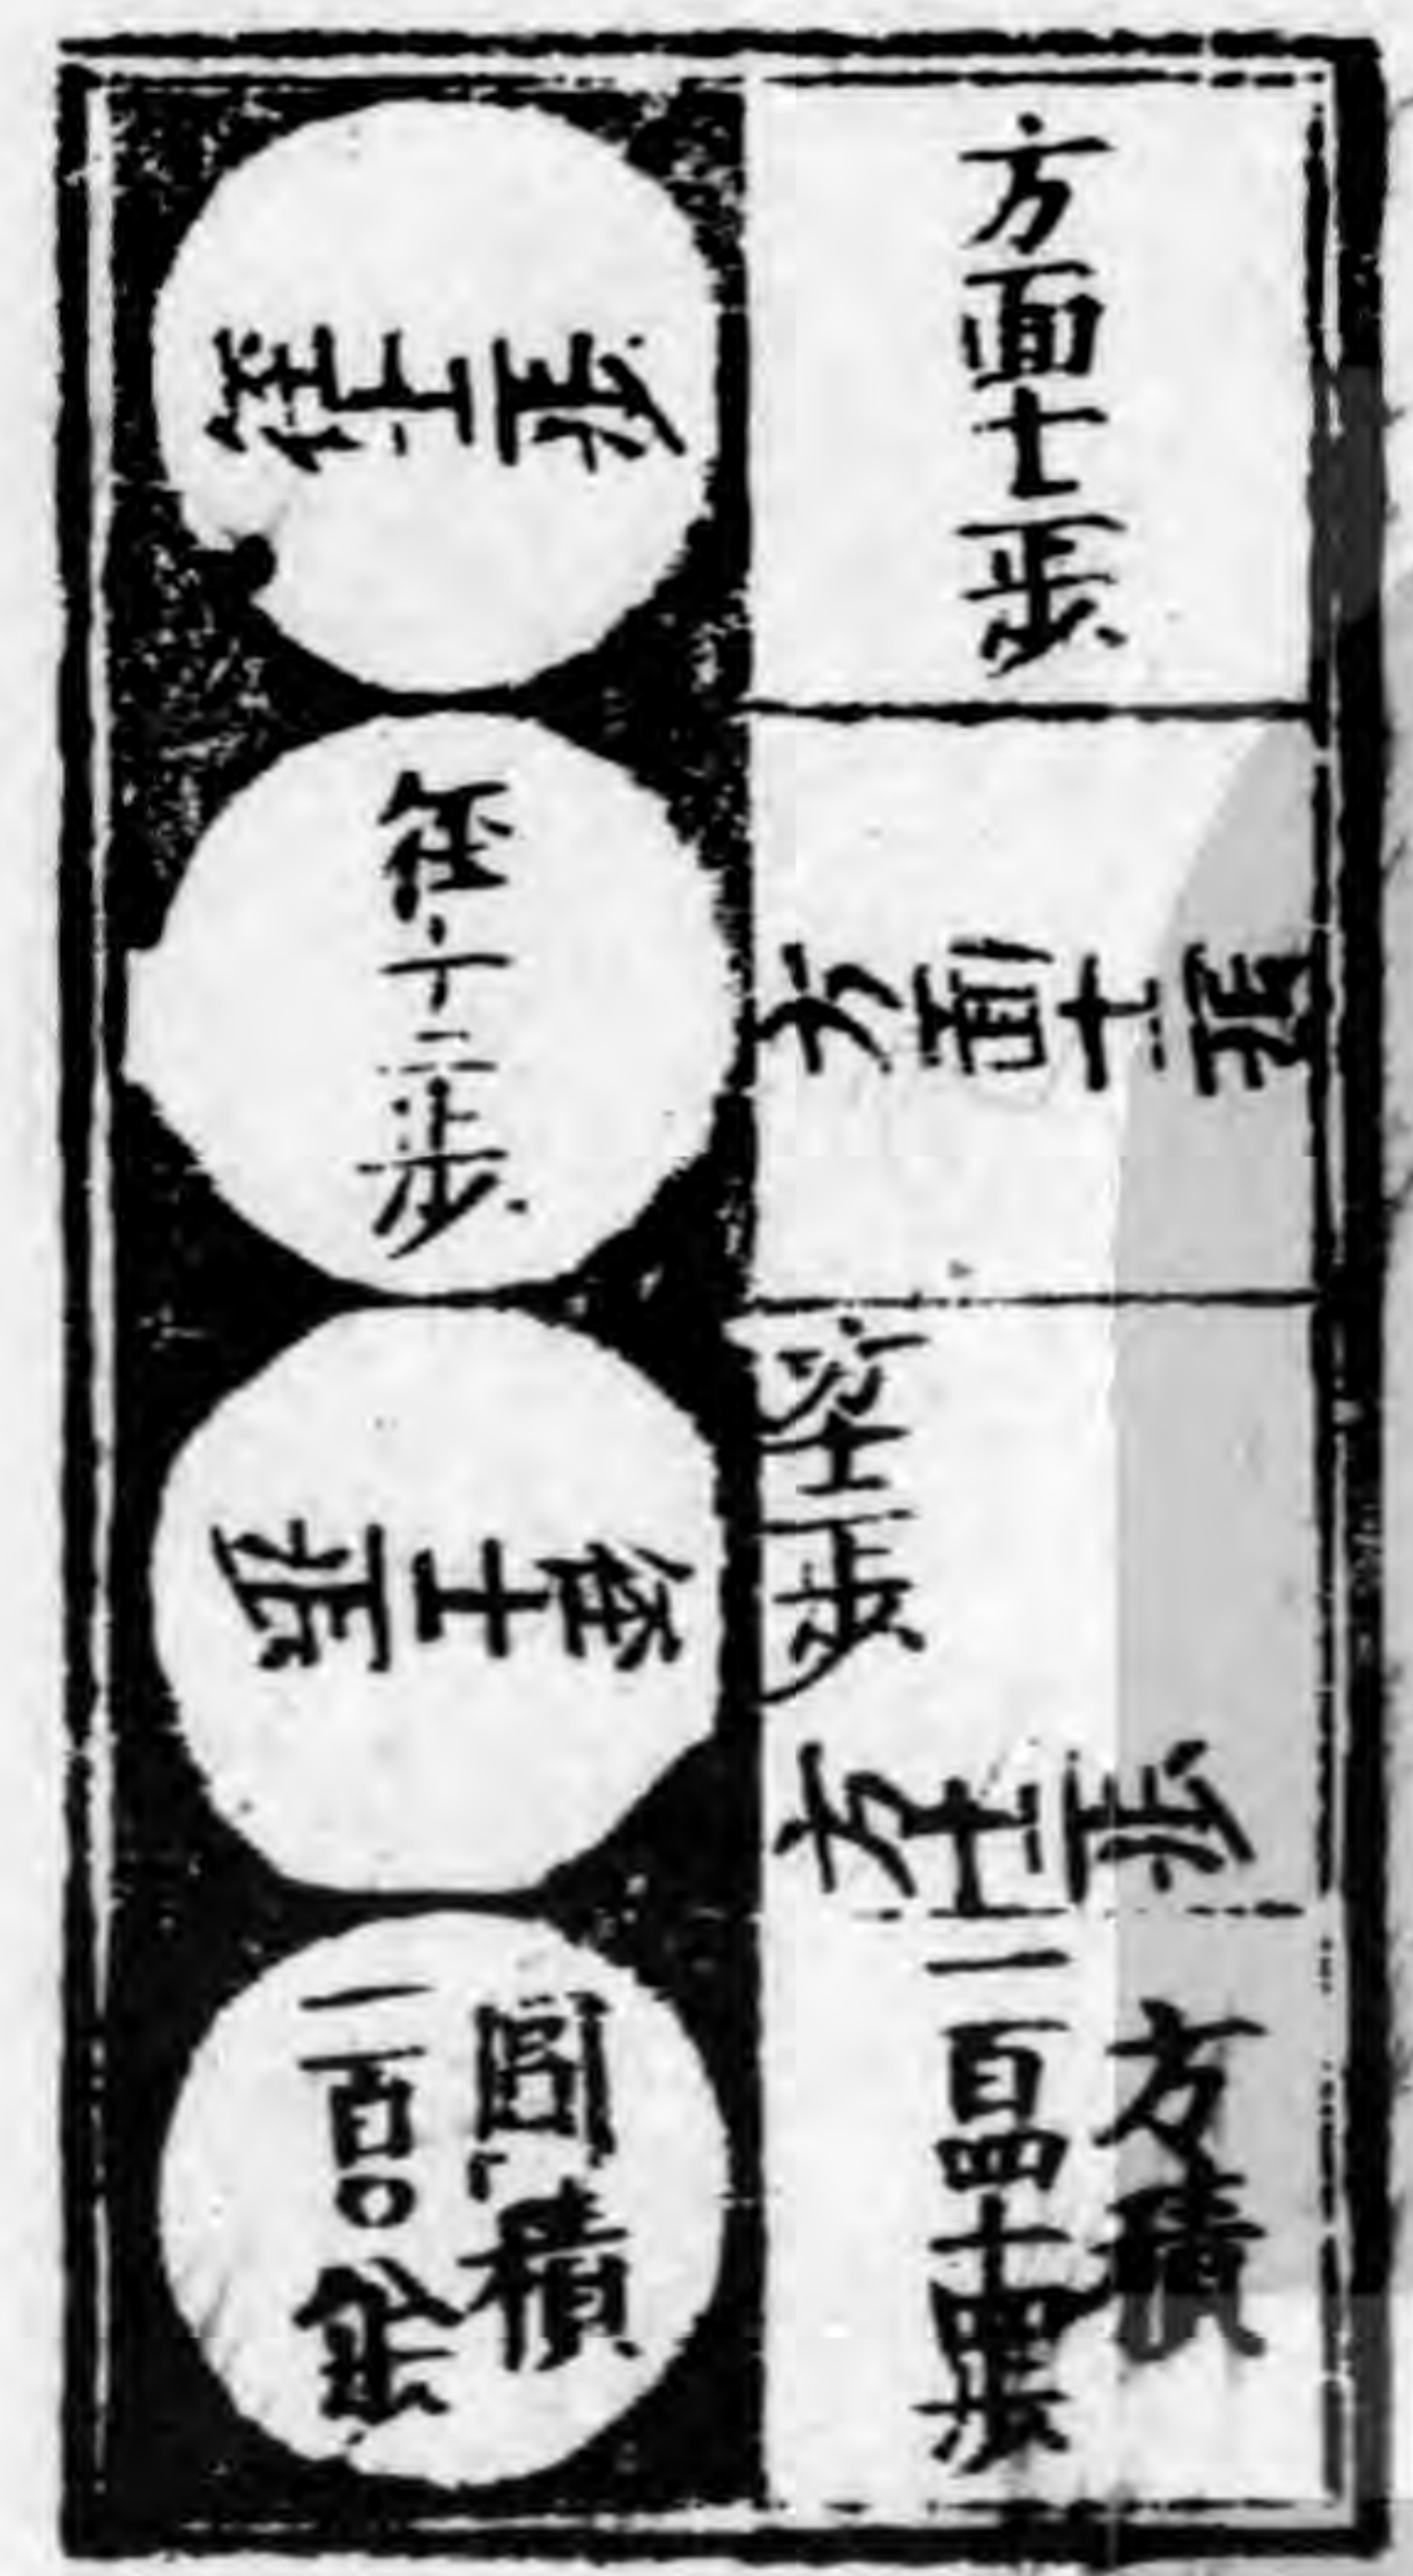 方面十二步
方面十二步
方十二步
方十二步
方積
一百四十四步
徑十二步
徑十二步
徑十二步
圓積
一百〇八步